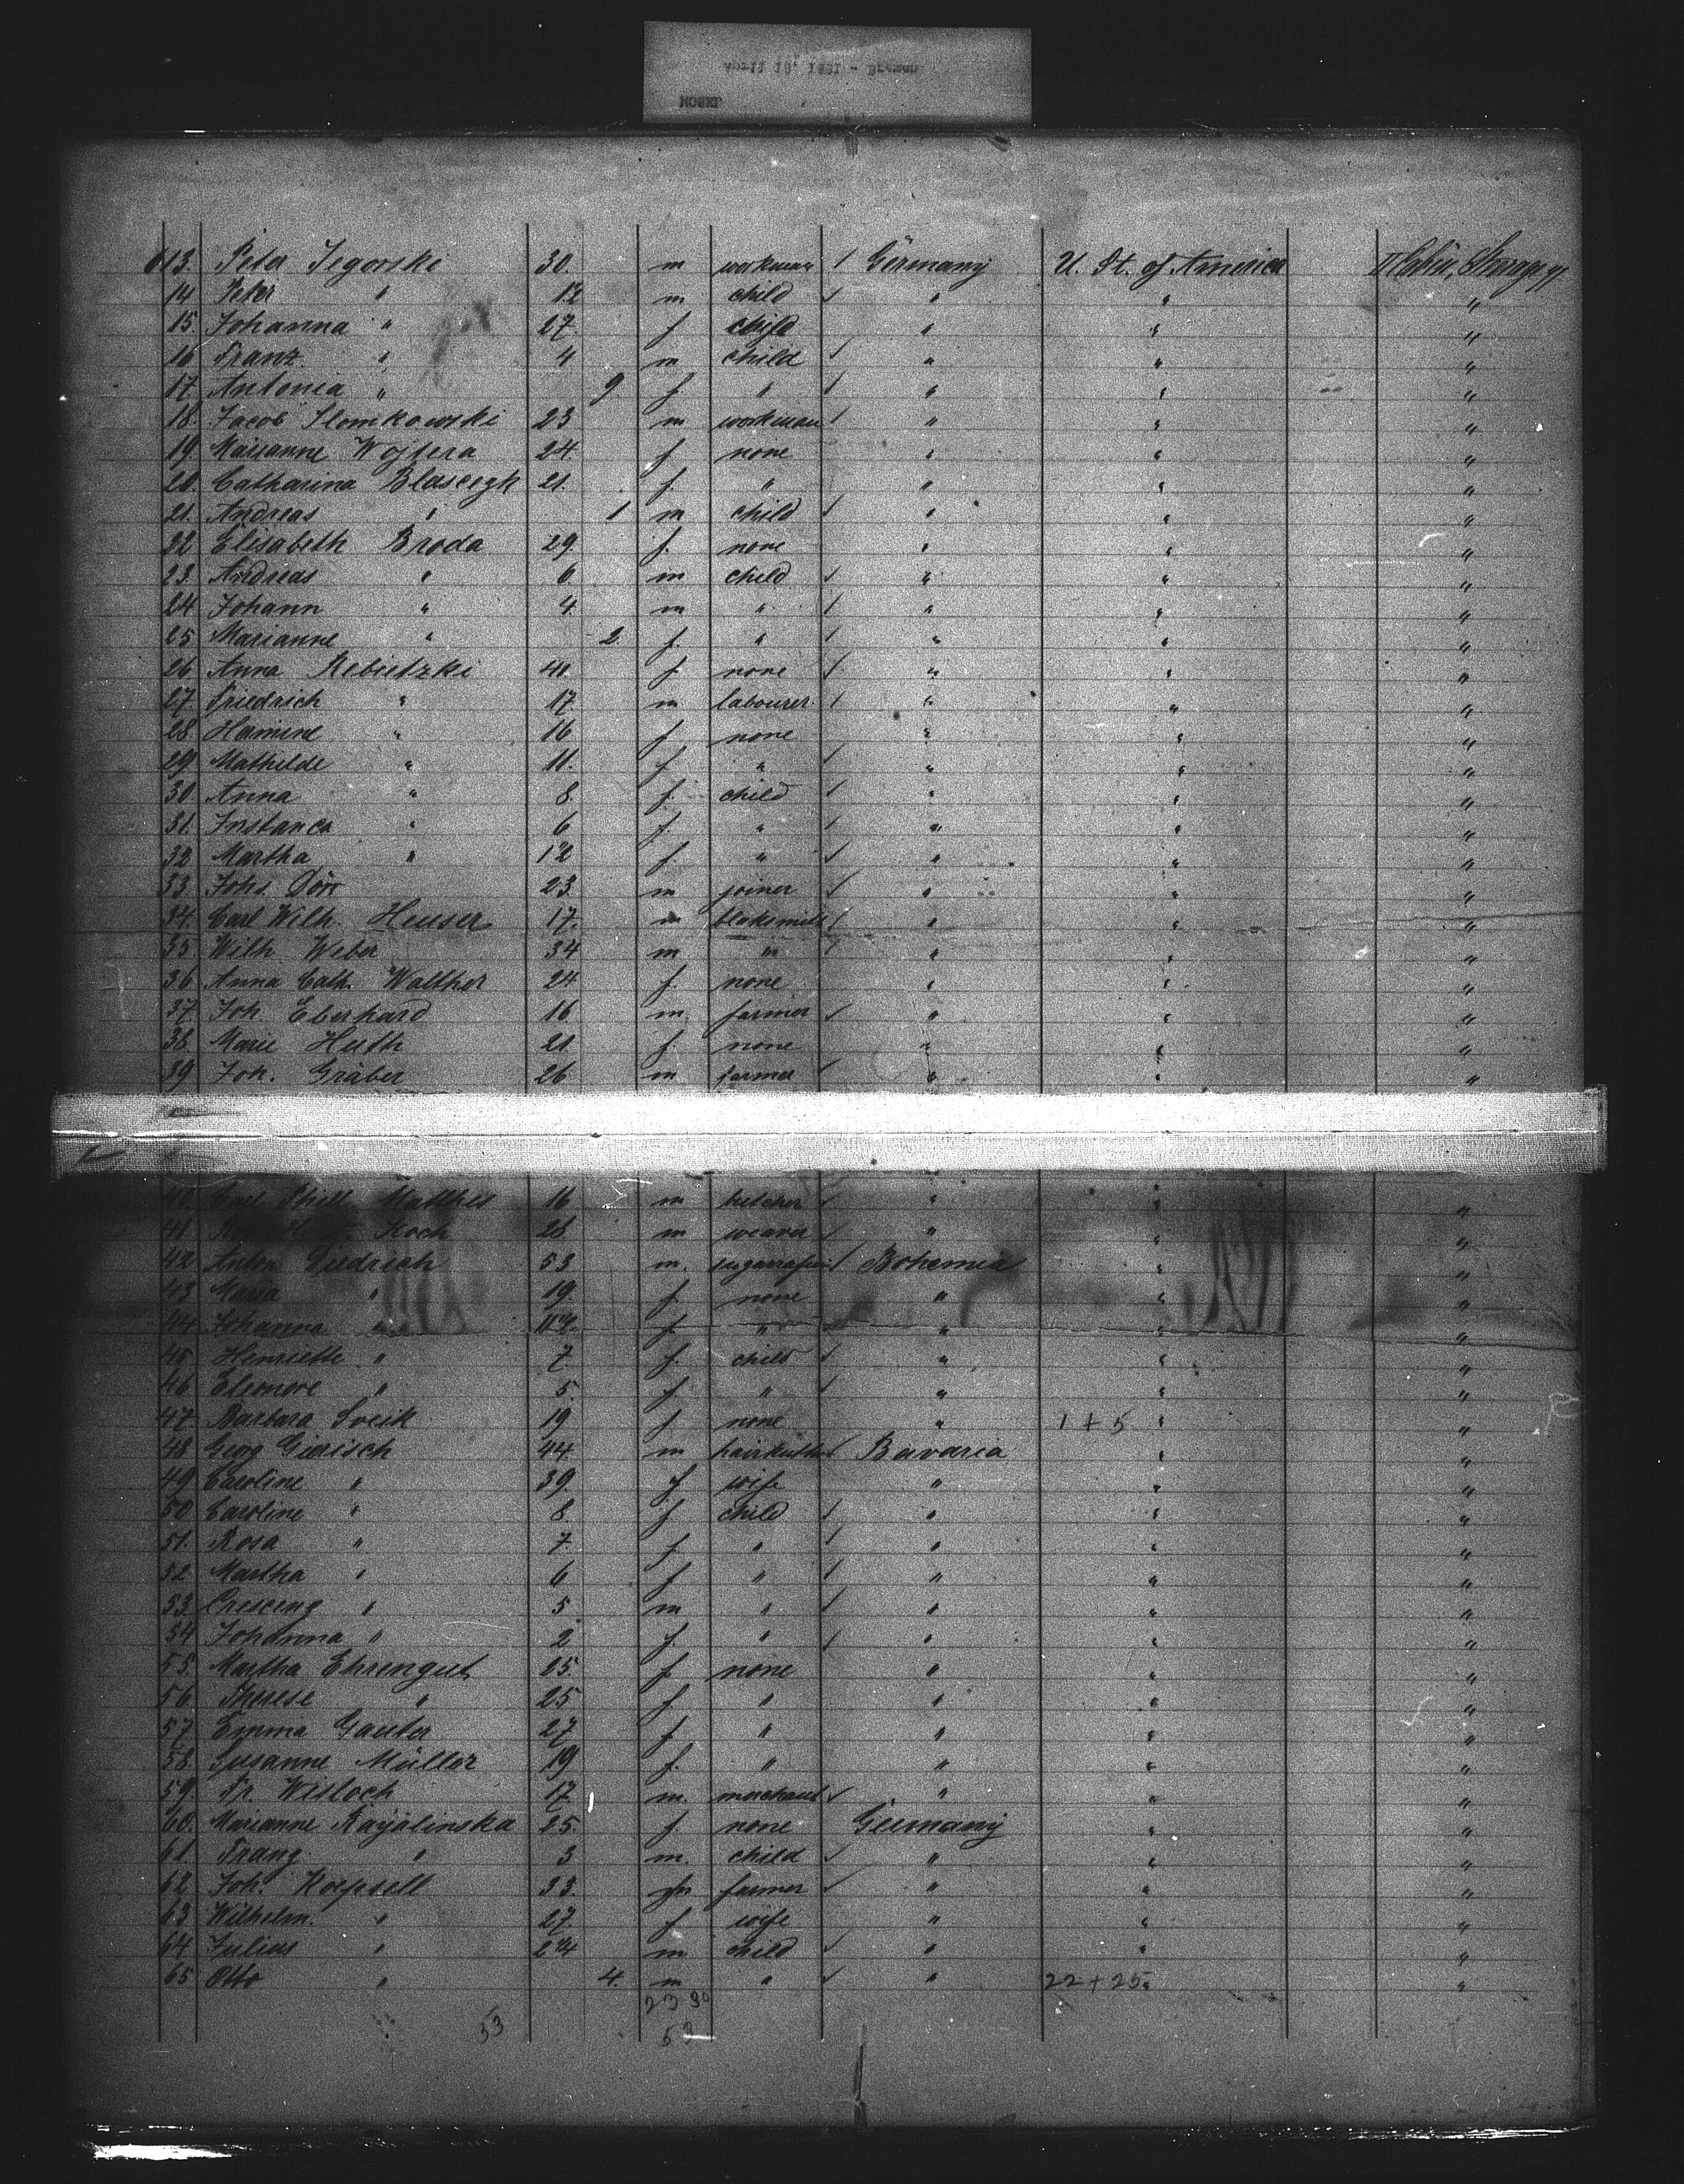 April 18, 1881 - Bremen
MOSEL
613. Peter Segorski 30. m workman / Germany U. St. of America II Cabin, Steerage
14 Peter " 12 m child " " "
15 Johanna " 27. f child " " "
16 Franz " 4 m child " " "
17. Antonia " 9 f " " " "
18. Jacob Slomkowski 23 m workman " " "
19. Marianne Wojtera 24. f none " " "
20. Catharina Blascegk 21. f. " " " "
21. Andreas " 1 m child " " "
22 Elisabeth Broda 29. f. none " " "
23. Andreas " 6 m child " " "
24 Johann " 4. m " " " "
25 Marianne " 2. f. " " " "
26 Anna Rebietzki 41. f none " " "
27. Friedrich " 17. m labourer " " "
28. Hermine " 16 f none " " "
29 Mathilde " 11. f " " " "
30 Anna " 8. f. child " " "
31. " 6 f. " " " "
32 Martha " f. " " " "
33 Johs. Dörr 23. m joiner " " "
34. Carl Wilh. Heuser 17. m blaksmith " " "
35 Wilh. Weber 34 m " " " "
36 Anna Cath. Walther 24 f. none " " "
37. Joh. Eberhard 16 m. farmer " " "
38 Marie Huth 21 f. none " " "
39 Joh. Gräber 26 m farmer " " "
40 Matthes 16 m butcher " " "
41 Koch 28 m weaver " " "
42 Anton Diedrich 53 m. Bohemia " "
43 Maria " 19. f. none " " "
44 Johanna " f. " " " "
45 Henriette " 7. f. child " " "
46 Eleonore " 5. f " " " "
47. Barbara Sveik 19 f none " 1 + 5 " "
48. Georg Girisch 44. m Bavaria " "
49 Caroline " 39. f wife " " "
50 Caroline " 8. f child " " "
51. Rosa " 7. f " " " "
52 Martha " 6 f " " " "
53 Crescenz " 5 m " " " "
54 Johanna " 2 f. " " " "
55. Martha Ehrengut 25. f none " " "
56 Therese " 25 f " " " "
57 Emma Gauter 27 f " " " "
58. Susanne Müller 19 f. " " " "
59. Fr. Wisloch 17 m. merchant " " "
60. Marianne 25. f none Germany " "
61. Franz " 3 m. child " " "
62 Joh. Koepsell 33. m farmer " " "
63 Wilhelm. " 27. f wife " " "
64 Julius " m child " " "
65 Otto " 4. m " " 22 + 25 " "
23 30
53 53